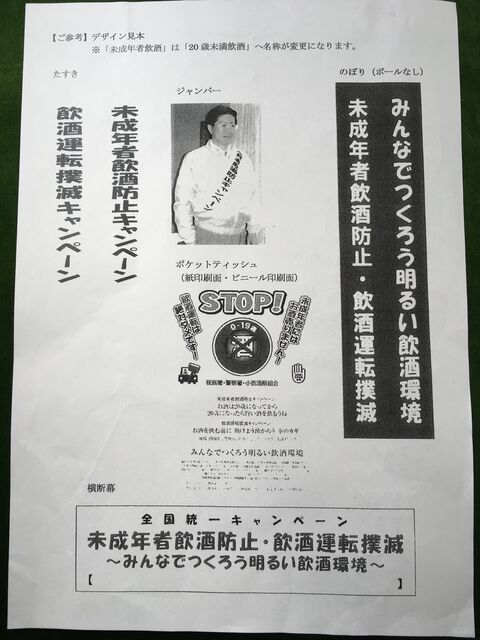 【ご参考】デザイン見本
※「未成年者飲酒」は「20歳未満飲酒」へ名称が変更になります。
たすき
未成年者飲酒防止キャンペーン
飲酒運転撲滅キャンペーン
ジャンパー
のぼり(ポールなし)
みんなでつくろう明るい飲酒環境
未成年者飲酒防止・飲酒運転撲滅
ポケットティッシュ
(紙印刷面・ビニール印刷面)
STOP!
0-19歳
未成年者には
お酒売りません!
飲酒運転は
絶対ダメです!
税務署・警察署・小売酒販組合
未成年者飲酒防止キャンペーン
お酒は20歳になってから
飲酒運転撲滅キャンペーン
みんなでつくろう明るい飲酒環境
横断幕
全国統一キャンペーン
未成年者飲酒防止・飲酒運転撲滅
～みんなでつくろう明るい飲酒環境～
【 】